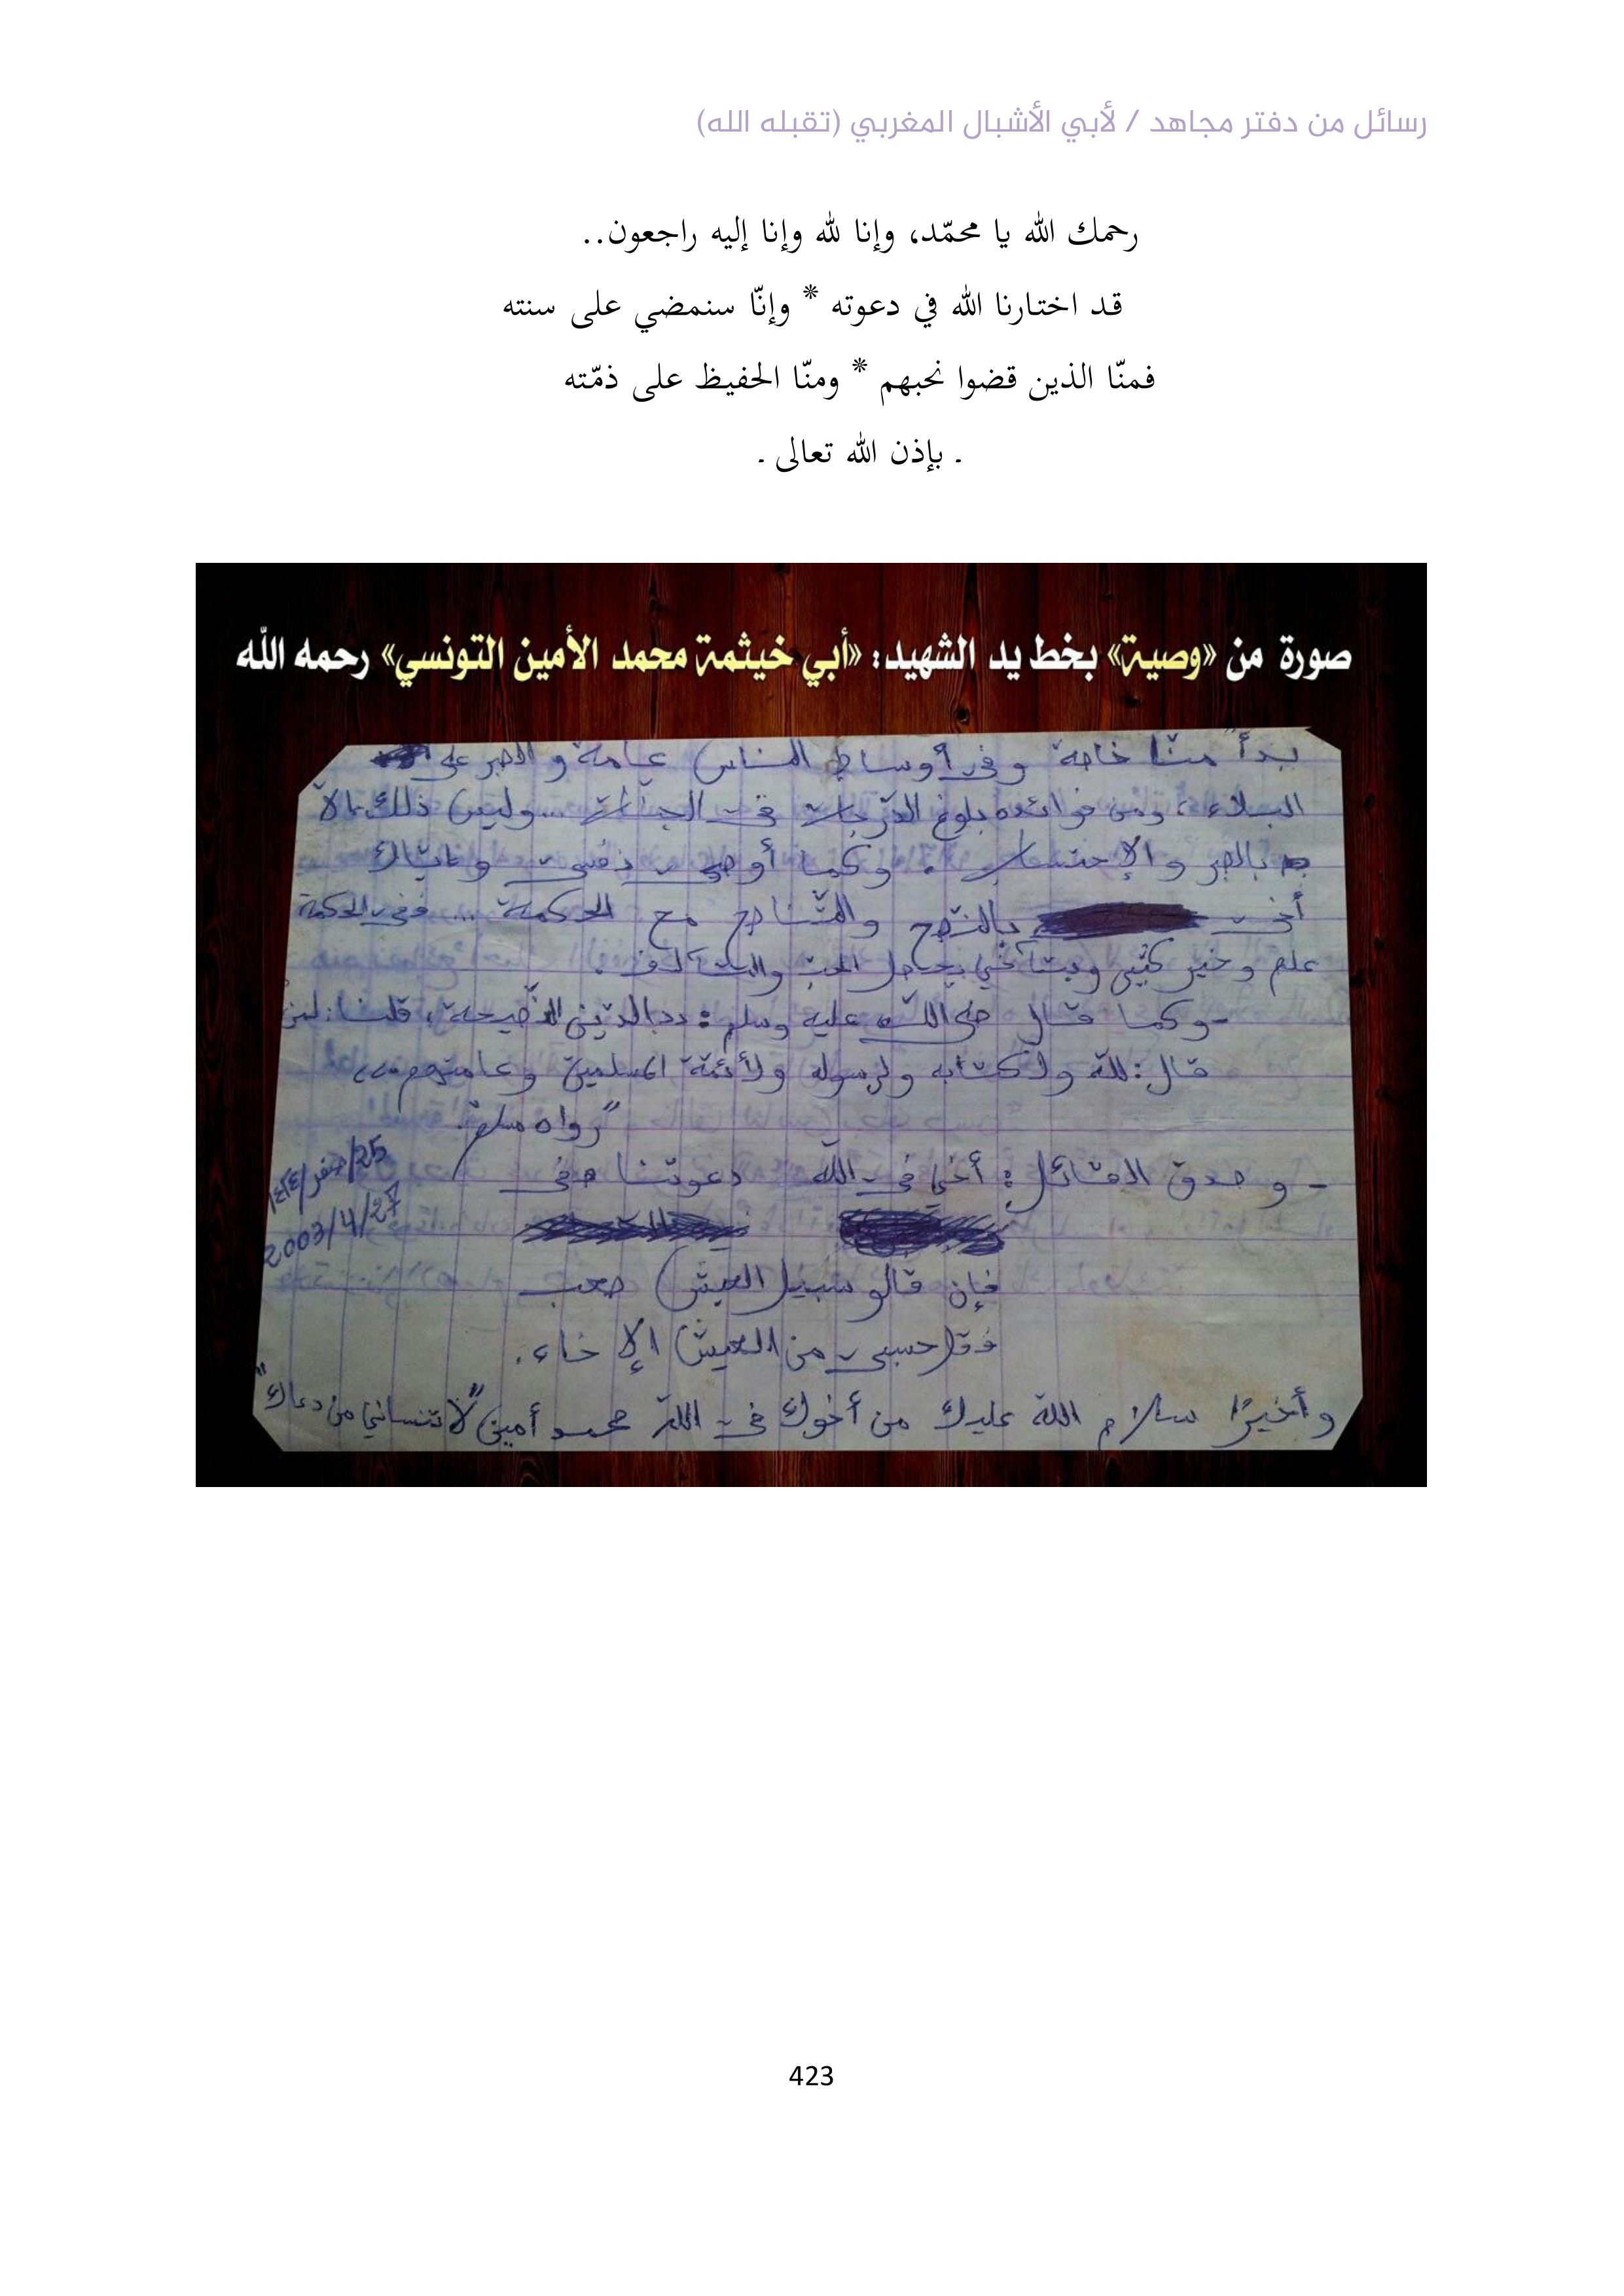 رسائل من دفتر مجاهد / لأبي الأشبال المغربي (تقبله الله)
رحمك الله يا محمّد، وإنا لله وإنا إليه راجعون..
قد اختارنا الله في دعوته * وإنّا سنمضي على سنته
فمنّا الذين قضوا نحبهم * ومنّا الحفيظ على ذمّته
- بإذن الله تعالى -
صورة من «وصية» بخط يد الشهيد: «أبي خيثمة محمد الأمين التونسي» رحمه الله
بدأ منا خاصة وفي أوساط الناس عامة والصبر على
البلاء، ومن فوائده بلوغ الدّرجات في الجنات... وليس ذلك إلاّ
بالصبر والإحتساب. وكما أوصي نفسي وإيّاك
أخي بالنّصح والتّناصح مع الحكمة ... ففي الحكمة
علم وخير كثير وبتآخي يحصل الحب والتآلف.
- وكما قال صلى الله عليه وسلم: الدّين النّصيحة، قلنا: لمن
قال: لله ولكتابه ولرسوله ولأئمّة المسلمين وعامتهم
"رواه مسلم".
25/صفر/١٤٢٤
2003/4/27
- وصدق القائل: أخي في الله دعوتنا
فإن قالو سبيل العيش صعب
فقل حسبي من العيش الإخاء.
وأخيرًا سلام الله عليك من أخوك في الله محمد أمين "لا تنساني من دعاك"
423